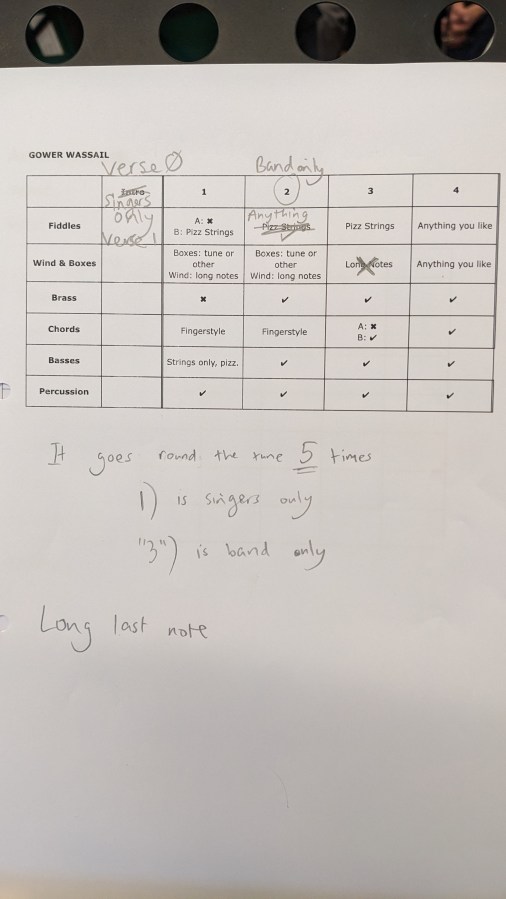 GOWER WASSAIL
Verse Ø Band only
Intro 1 2 3 4
Singers
only
Verse 1
Fiddles A: ✖ Anything Pizz Strings Anything you like
B: Pizz Strings Pizz Strings
Wind & Boxes Boxes: tune or Boxes: tune or Long Notes Anything you like
other other
Wind: long notes Wind: long notes
Brass ✖ ✔ ✔ ✔
Chords Fingerstyle Fingerstyle A: ✖ ✔
B: ✔
Basses Strings only, pizz. ✔ ✔ ✔
Percussion ✔ ✔ ✔ ✔
It goes round the tune 5 times
1) is singers only
"3") is band only
Long last note